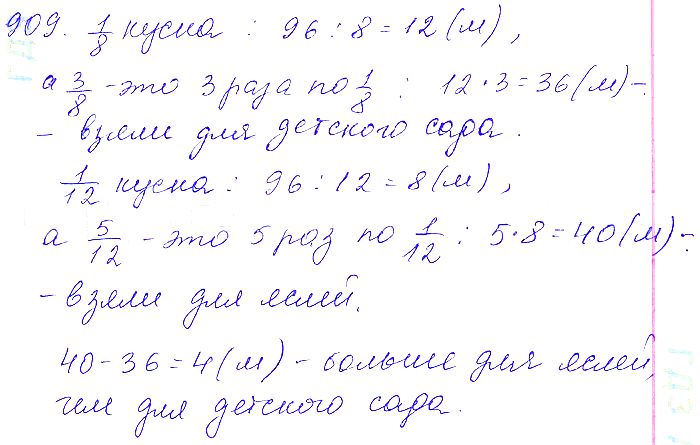 909. 1/8 куска : 96 : 8 = 12 (м),
а 3/8 - это 3 раза по 1/8 : 12 · 3 = 36 (м) -
- взяли для детского сада.
1/12 куска : 96 : 12 = 8 (м),
а 5/12 - это 5 раз по 1/12 : 5 · 8 = 40 (м) -
- взяли для яслей.
40 - 36 = 4 (м) - больше для яслей,
чем для детского сада.